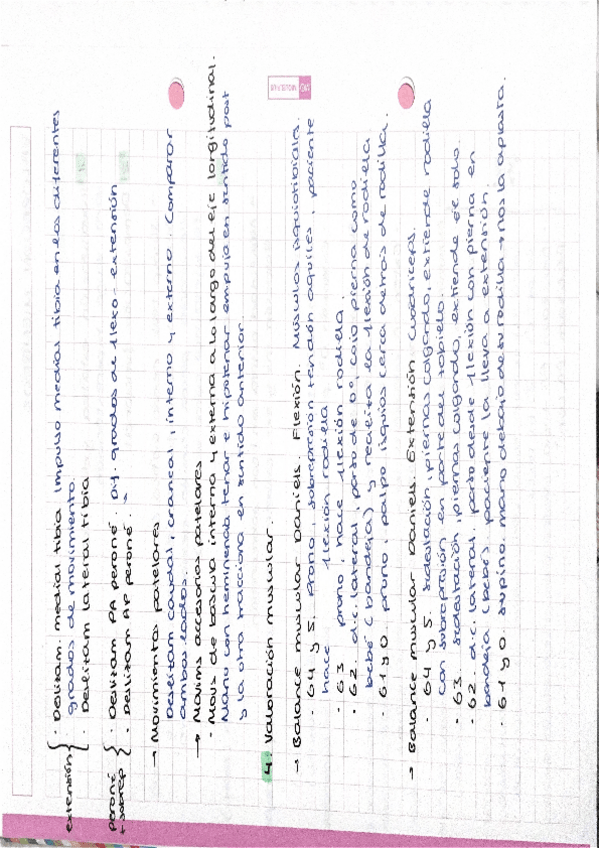 extensión { · Deslizam. medial tibia Impulso medial tibia en los diferentes
grados de movimiento.
· Deslizam lateral tibia
peroné + sobrep { · Deslizam PA peroné. Df. grados de flexo-extensión
· Deslizam AP peroné.
→ Movimientos patelares
Deslizam caudal, craneal, interno y externo. Comparar
ambos lados.
→ Movims accesorios patelares
· Movs de báscula interna y externa a lo largo del eje longitudinal.
Manu con heminencia tenar e hipotenar empuja en sentido post
y la otra tracciona en sentido anterior.
4. Valoración muscular.
→ Balance muscular Daniels. Flexión. Músculos isquiotibiales.
· G4 y 5. prono, sobrepresión tendón aquiles, paciente
hace flexión rodilla
· G3 prono, hace flexión rodilla.
· G2. d.c. lateral, parto de 0º, cojo pierna como
bebé (bandeja) y realiza la flexión de rodilla
· G1 y 0. prono, palpo isquios cerca detrás de rodilla.
→ Balance muscular Daniels. Extensión Cuádriceps.
· G4 y 5. sedestación, piernas colgando, extiende rodilla
con sobrepresión en parte del tobillo.
· G3. sedestación, piernas colgando, extiende él solo.
· G2. d.c. lateral, parto desde flexión con pierna en
bandeja (bebé), paciente la lleva a extensión.
· G1 y 0. supino. mano debajo de su rodilla → nos la aplasta.